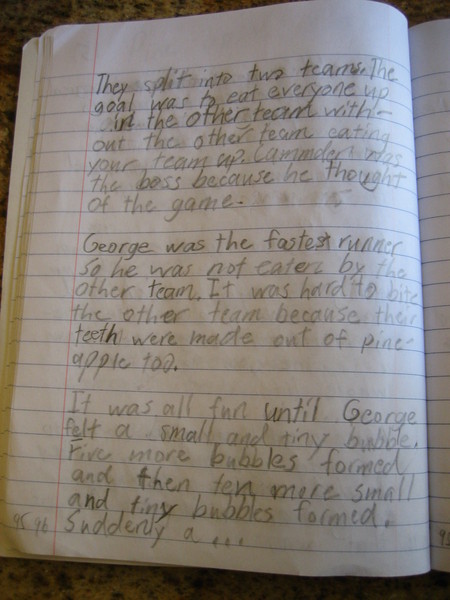 They split into two teams. The
goal was to eat everyone up
in the other team with-
out the other team eating
your team up. Cammden was
the boss because he thought
of the game.
George was the fastest runner
so he was not eaten by the
other team. It was hard to bite
the other team because their
teeth were made out of pine-
apple too.
It was all fun until George
felt a small and tiny bubble.
Five more bubbles formed
and then ten more small
and tiny bubbles formed.
95 96 Suddenly a ...